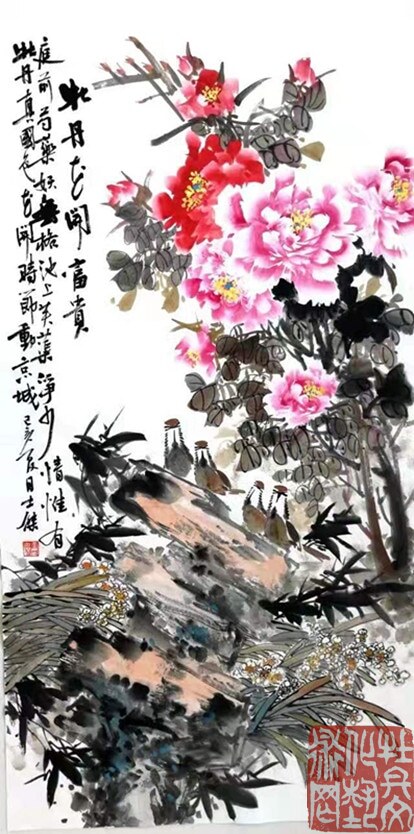 牡丹花開富貴
庭前芍藥妖無格池上芙蕖淨少情惟有
牡丹真國色花開時節動京城己亥夏日士傑
牡丹文
化藝